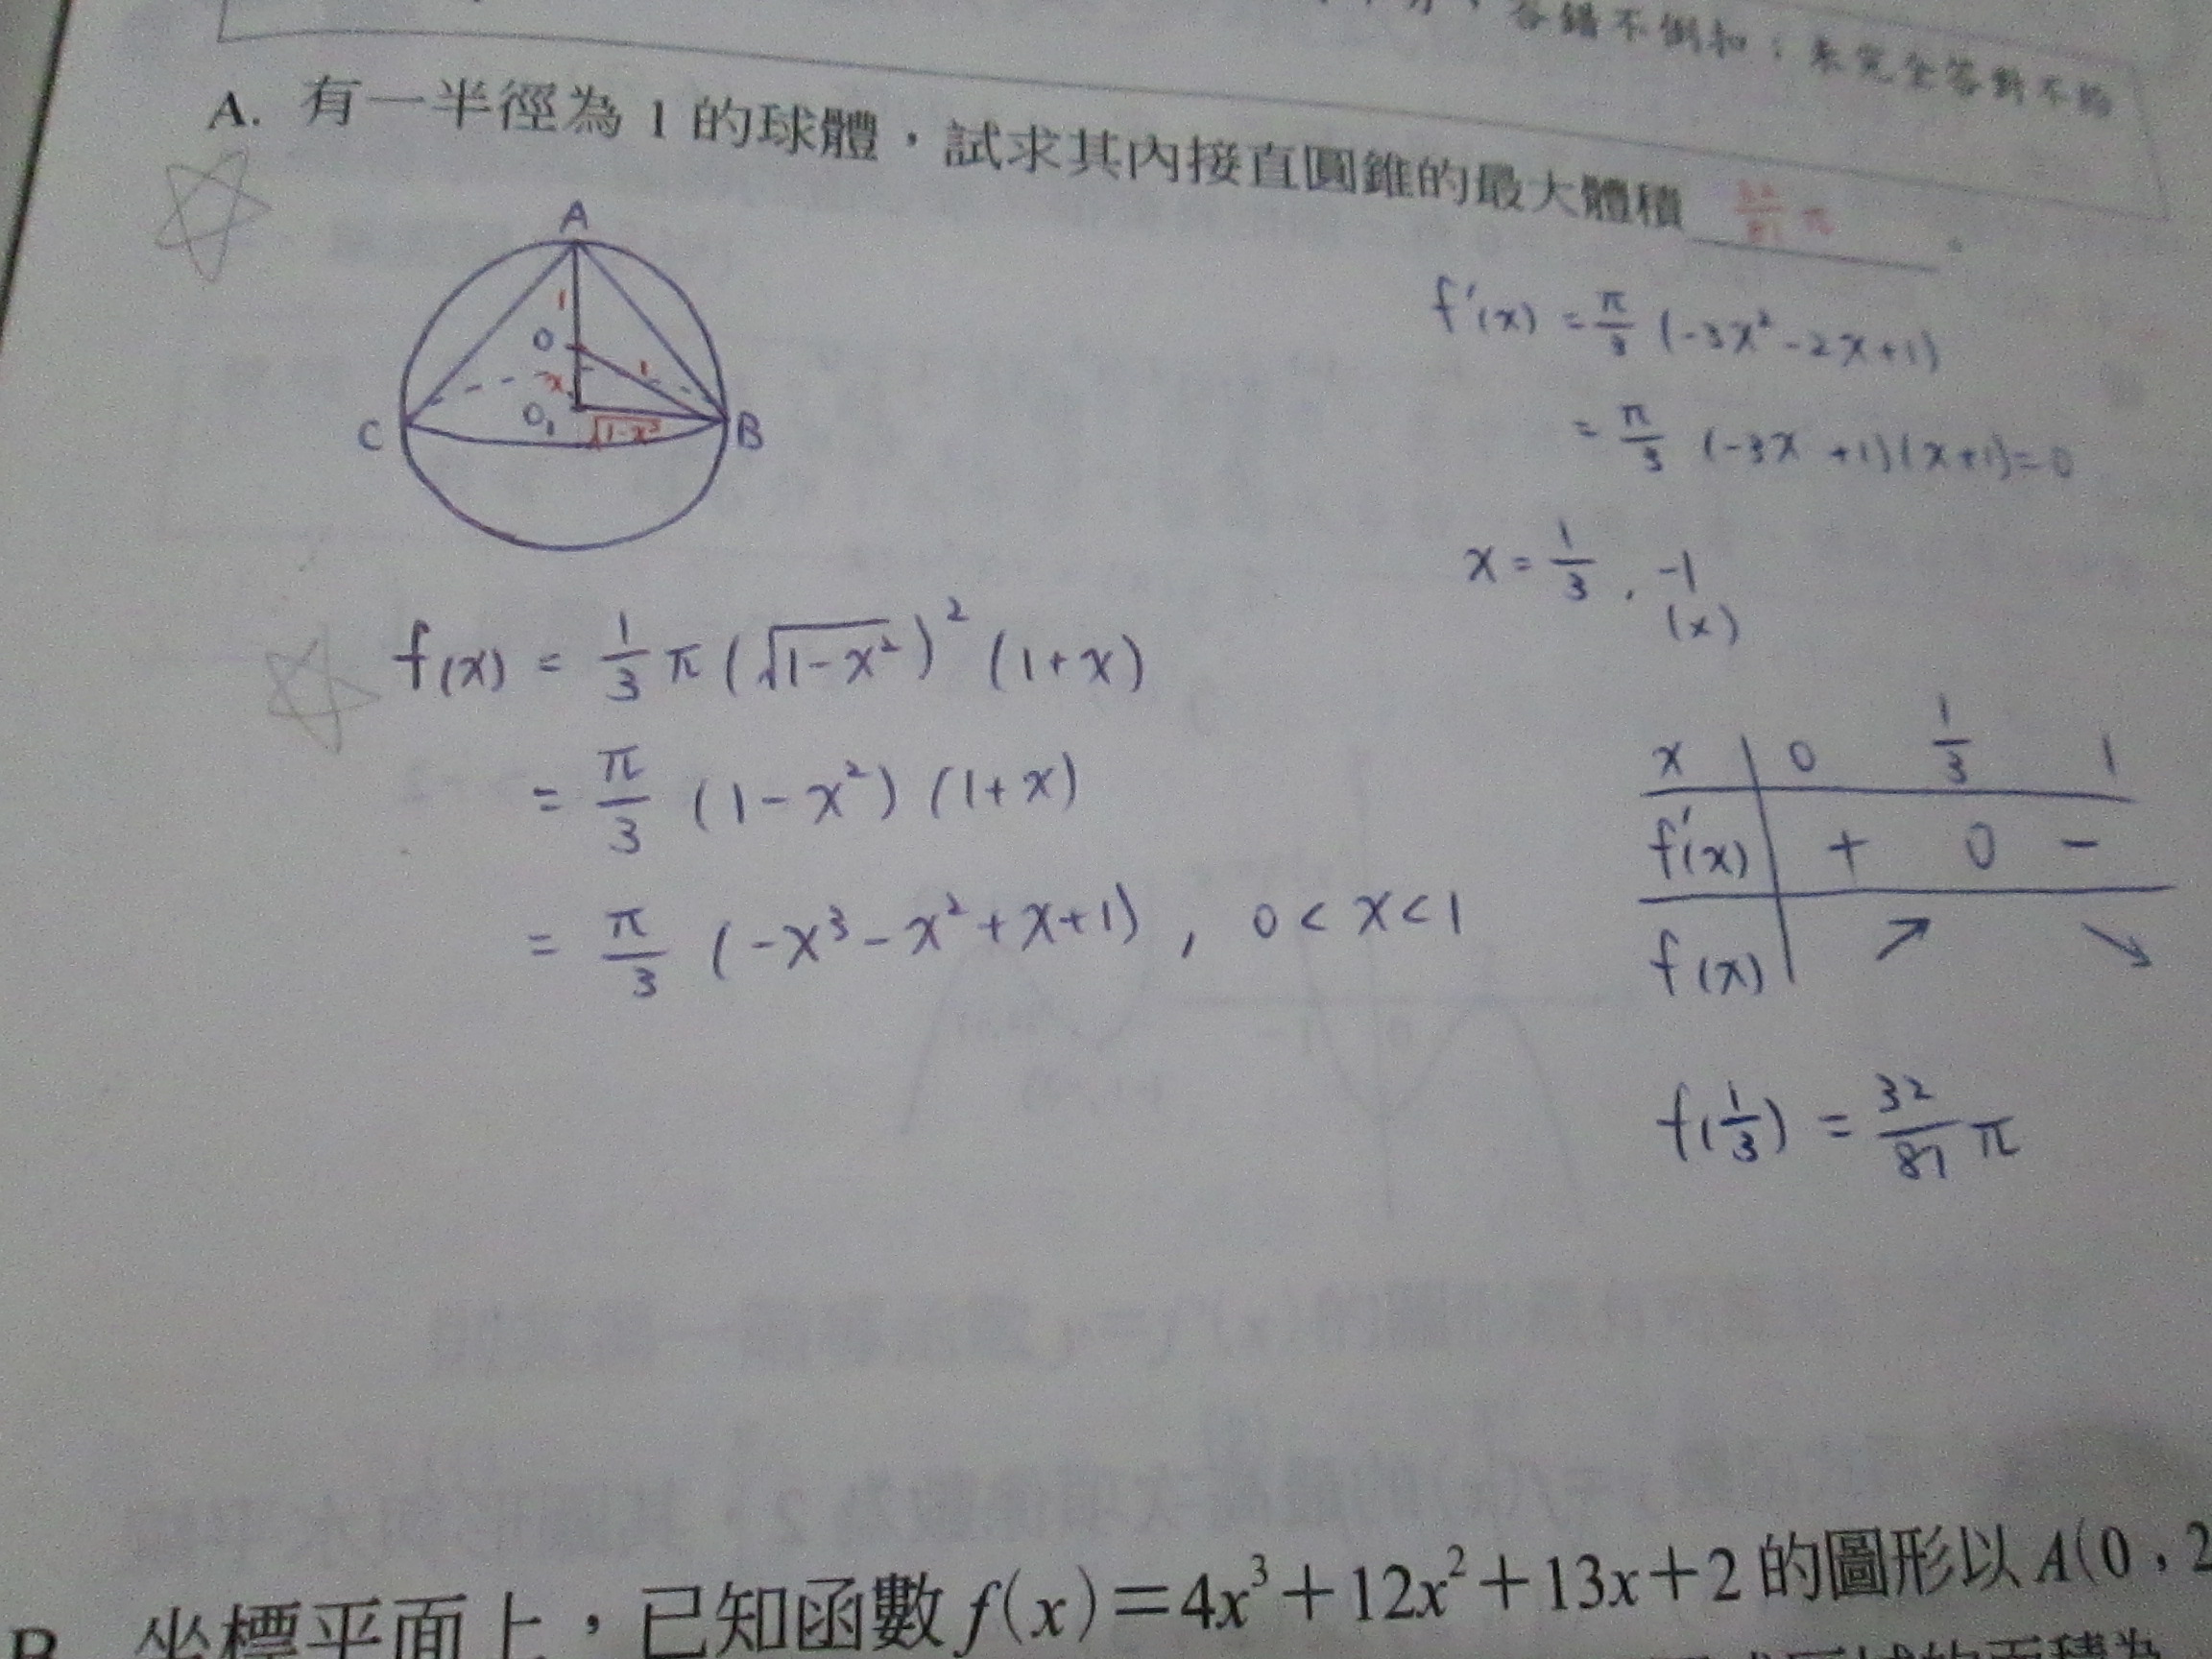 各錯不倒扣；未完全答對不給
A. 有一半徑為 1 的球體，試求其內接直圓錐的最大體積 32/81 π 。
A
1
O
1
x
O₁
√1-x²
C
B
f'(x) = π/3 (-3x² -2x+1)
= π/3 (-3x +1)(x+1)=0
x = 1/3 , -1
(x)
f(x) = 1/3 π (√1-x²)² (1+x)
= π/3 (1-x²) (1+x)
= π/3 (-x³-x²+x+1) , 0<x<1
x 0 1/3 1
f'(x) + 0 -
f(x) ↗ ↘
f(1/3) = 32/81 π
B. 坐標平面上，已知函數 f(x)＝4x³＋12x²＋13x＋2 的圖形以 A(0，2
的面積為